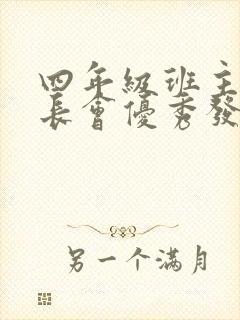 四年級班主
長會優秀發
另一个满月